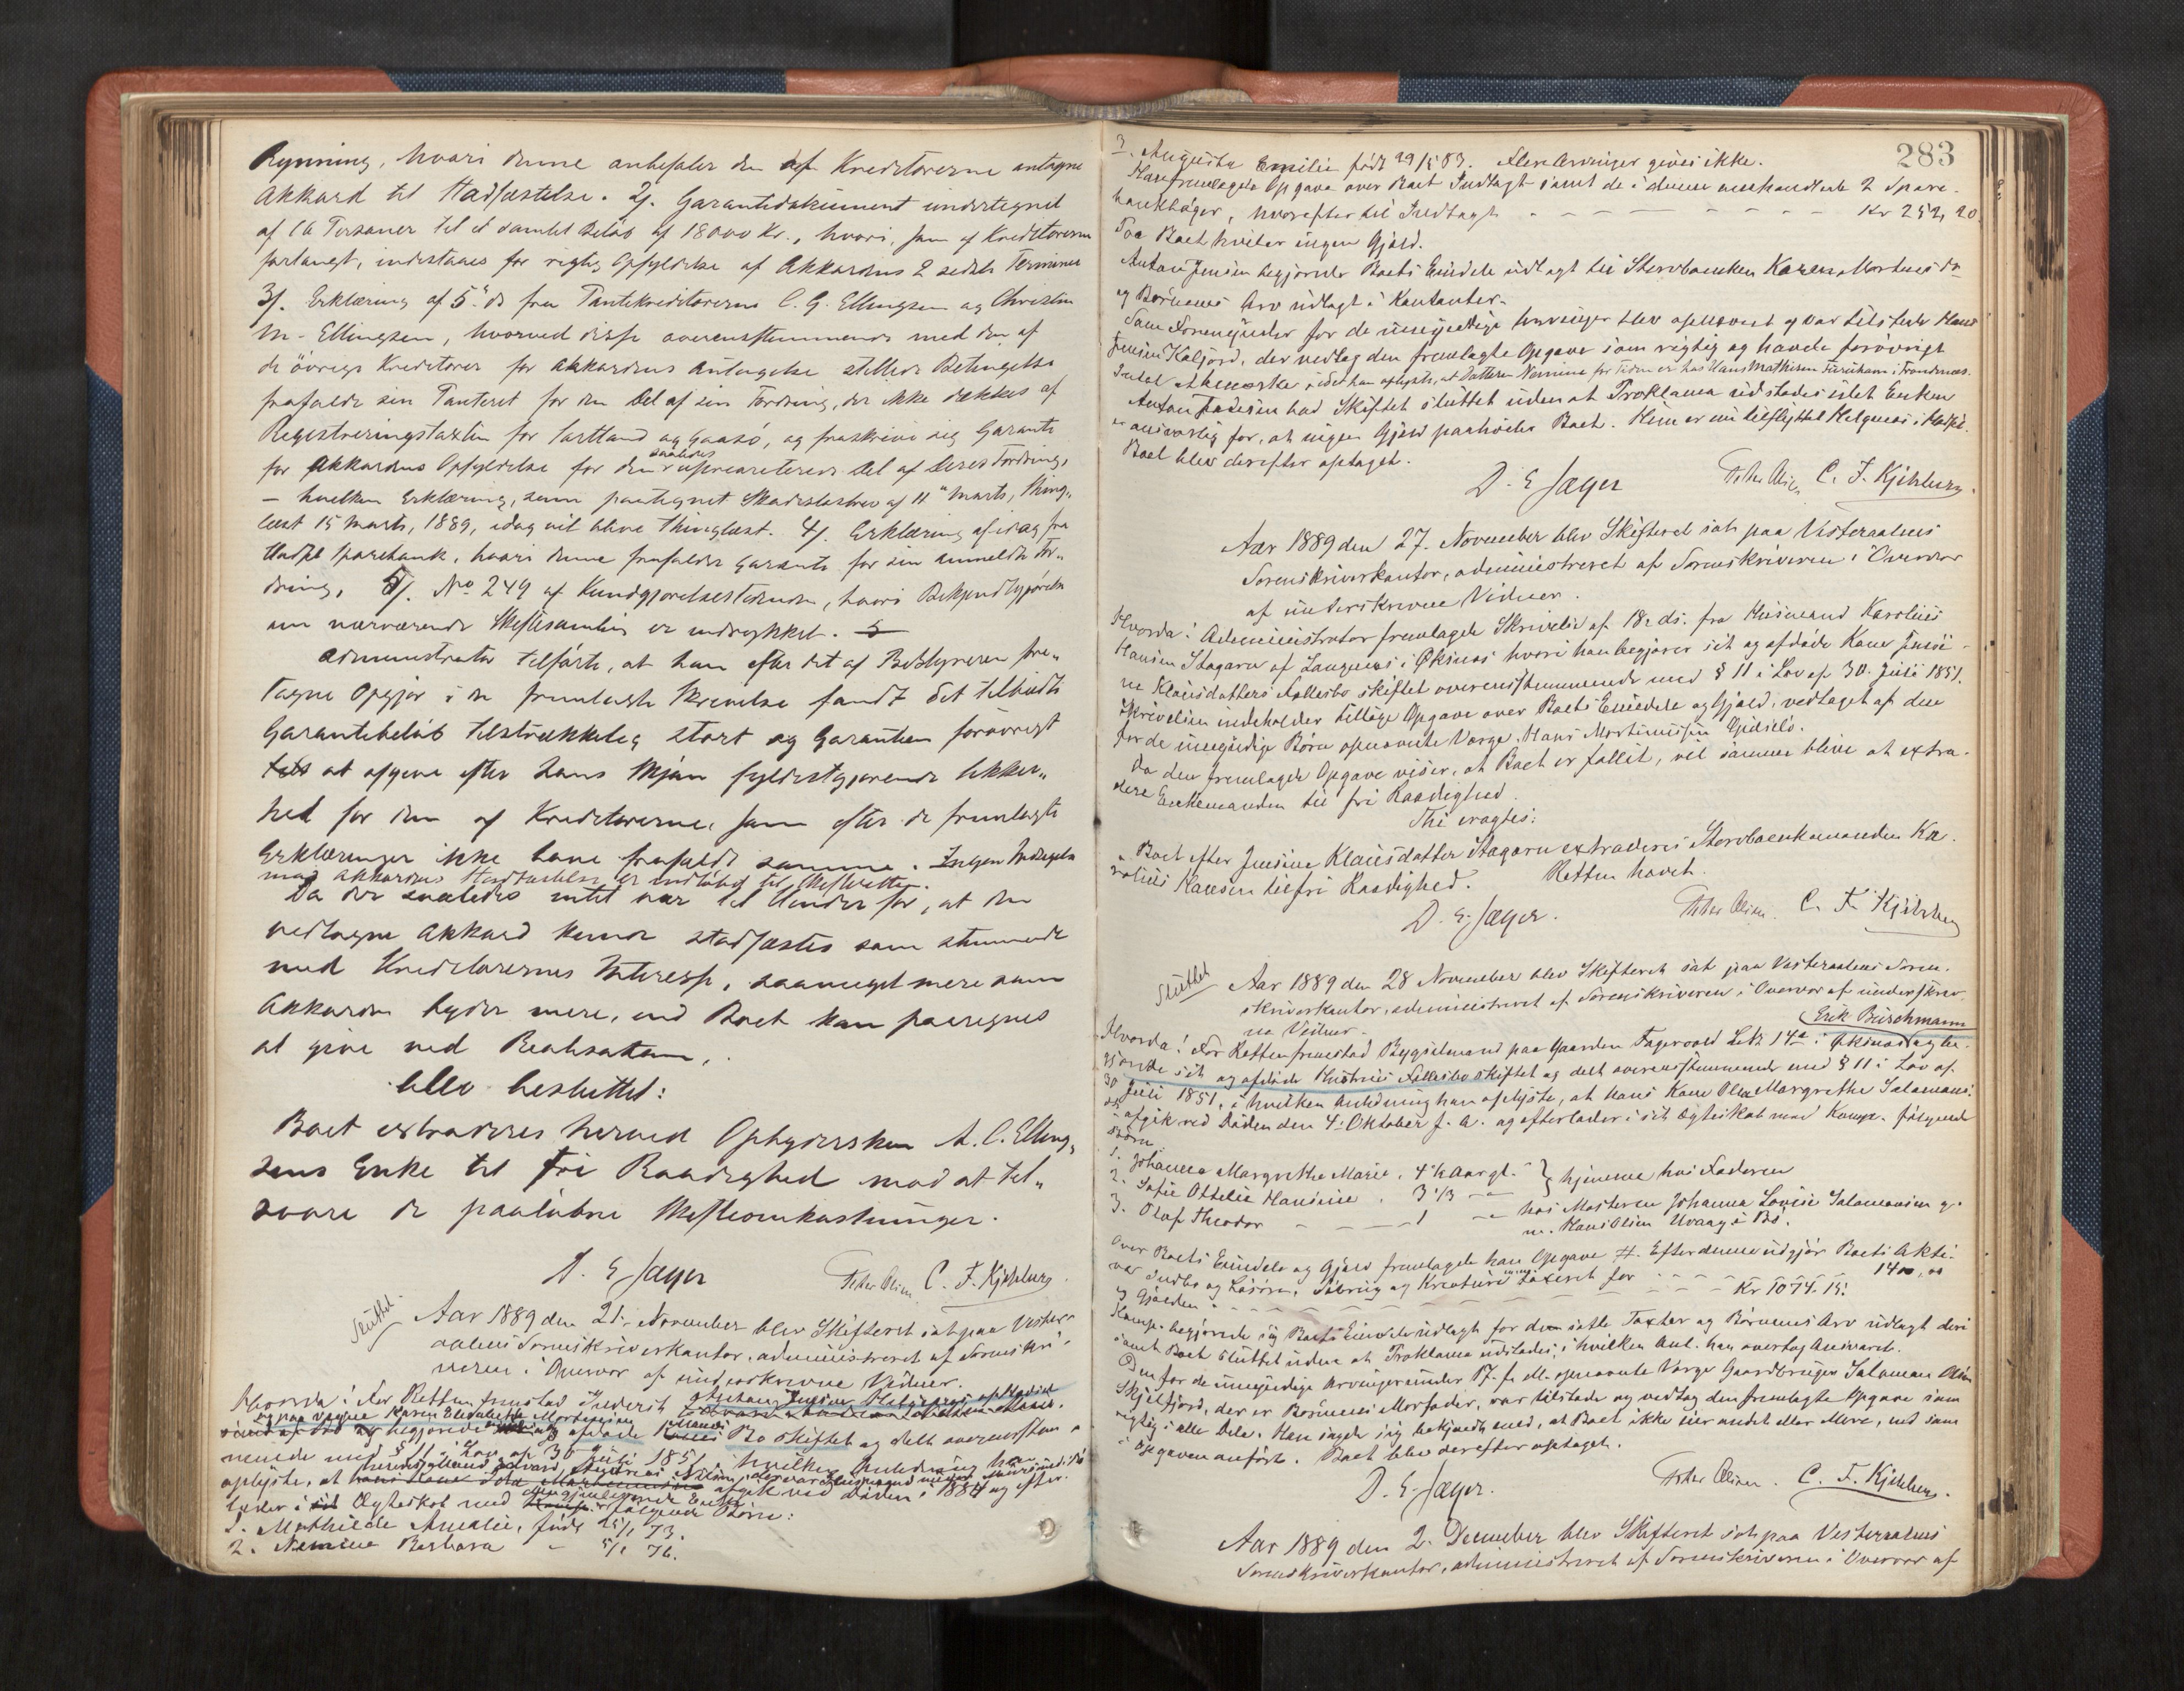 Rynning, hvori denne anbefaler den af Kreditorerne antagne
Akkord til Stadfæstelse. 2/. Garantidokument undertegnet
af 16 Personer til et samlet Beløb af 18000 Kr., hvori, som af Kreditorerne
forlangt, indestaaes for rigtig Opfyldelse af Akkordens 2 sidste Terminer
3/. Erklæring af 5te ds fra Pantekreditorerne C. G. Ellingsen og Christen
M. Ellingsen, hvorved disse overensstemmende med den af
de øvrige Kreditorer for Akkordens Antagelse stillede Betingelse
frafalde sin Panteret for den Del af sin Fordring, der ikke dækkes af
Registreringstaxten for Sortland og Gaasø, og fraskrive sig Garanti
for Akkordens Opfyldelse for den saaledes uprioriterede Del af deres Fordring,
– hvilken Erklæring, som paategnet Skadesløsbrev af 11te Marts, thing-
læst 15 Marts, 1889, idag vil blive thinglæst. 4/. Erklæring af idag fra
Hadsel Sparebank, hvori denne frafalder Garanti for sin anmeldte For-
dring. 5/. No 249 af Kundgjørelsestidende, hvori Bekjendtgjørelse
om nærværende Skiftesamling er indrykket.
Administrator tilførte, at han efter det af Bobestyreren fore-
tagne Opgjør i den fremlagte Skrivelse fandt det tilbudte
Garantibeløb tilstrækkelig stort og Garantien forøvrigt
at afgive efter hans Skjøn fyldestgjørende Sikker-
hed for dem af Kreditorerne, som efter de fremlagte
Erklæringer ikke have frafaldt samme. Ingen Indsigelse
mod Akkordens Stadfæstelse er indløbet til Skifteretten.
Da der saaledes intet var til Hinder for, at den
vedtagne Akkord kunde stadfæstes som stemmende
med Kreditorernes Interesse, saameget mere som
Akkorden byder mere, end Boet kan paaregnes
at give ved Realisation,
blev besluttet:
Boet extraderes herved Opbydersken A. C. Elling-
sens Enke til fri Raadighed mod at til-
svare de paaløbne Skifteomkostninger.
D. E Jæger Peter Olsen C. F. Kjihlberg
Sluttet
Aar 1889 den 21. November blev Skifteret sat paa Vester-
aalens Sorenskriverkontor, administreret af Sorenskri-
veren i Overvær af underskrevne Vidner.
Hvorda: For Retten fremstod Inderst Anton Jensen
og paa Vegne Karen Elisabeth Mortensen
begjærede afdøde Mands Bo skiftet og delt overensstem-
mende med § 11 i Lov af 30 Juli 1851, i hvilken Anledning han
oplyste, at afgik ved Døden i 1884 og efter-
lader i Ægteskab med følgende Børn:
1. Mathilde Amalie, født 25/1 73.
2. Nemine Barbara – 5/1 76.
283
3. Augusta Emilie født 29/5 83. Flere Arvinger gives ikke.
Han fremlagde Opgave over Boets Indtægt samt de i denne omhandlede 2 Spare-
bankbøger, hvorefter til Indtægt – – – Kr 252, 20.
Paa Boet hviler ingen Gjæld.
Anton Jensen begjærede Boets Eiendele udlagt til Stervboenken Karen Mortensdr
og Børnenes Arv udlagt i Kontanter.
Som Formynder for de umyndige Arvinger blev opnævnt og var tilstede Hans
Jensen Kaljord, der vedtog den fremlagte Opgave som rigtig og havde forøvrigt
Intet at bemærke, idet han oplyste, at Datteren Nemine for Tiden er hos Hans Mathisen i Trondenæs.
Anton Jensen bad Skiftet sluttet uden at Proklama udstedes idet Enken
er ansvarlig for, at ingen Gjæld paahviler Boet. Hun er nu tilflyttet Helgenes i Hadsel.
Boet blev derefter optaget.
D. E Jæger Peter Olsen C. F. Kjihlberg.
Aar 1889 den 27. November blev Skifteret sat paa Vesteraalens
Sorenskriverkontor, administreret af Sorenskriveren i Overvær
af underskrevne Vidner.
Hvorda: Administrator fremlagde Skrivelse af 18. ds. fra Husmand Karolius
Hansen Stagarn af Langenes i Øksnes hvori han begjærer sit og afdøde Kone Jensi-
ne Klausdatters Fællesbo skiftet overensstemmende med § 11 i Lov af 30. Juli 1851.
Skrivelsen indeholder tillige Opgave over Boets Eiendele og Gjæld, vedtaget af den
for de umyndige Børn opnævnte Værge, Hans Mortinussen Gjuslø.
Da den fremlagte Opgave viser, at Boet er fallit, vil samme blive at extra-
dere Enkemanden til fri Raadighed.
Thi eragtes:
Boet efter Jensine Klausdatter Stagarn extraderes Stervboenkemanden Ka-
rolius Hansen til fri Raadighed. Retten hævet.
D. E. Jæger. Peter Olsen. C. F. Kjihlberg
Sluttet
Aar 1889 den 28 November blev Skifteret sat paa Vesteraalens Soren-
skriverkontor, administreret af Sorenskriveren i Overvær af underskrev-
ne Vidner. Erik Buschmann
Hvorda: For Retten fremstod Bygselmand paa Gaarden Fagervold Lb. 14a i Øksnes og be-
gjærede sit og afdøde Hustrues Fællesbo skiftet og delt overensstemmende med § 11 i Lov af
30 Juli 1851, i hvilken Anledning han oplyste, at hans Kone Olea Margrethe Salamons-
dr afgik ved Døden den 4. Oktober f. A. og efterlader i sit Ægteskab med Komp. følgende
Børn
1. Johanna Margrethe Marie, 4 1/2 Aar gl. } hjemme hos Faderen
2. Sofie Ottelie Hansine, 3 1/3 –
3. Olaf Theodor – – – 1 – hos Mosteren Johanna Lovise Salamonsen g.
m. Hans Olsen Uvaag i Bø.
Over Boets Eiendele og Gjæld fremlagde han Opgave #. Efter denne udgjør Boets Akti-
va: Indbo og Løsøre, Søbrug og Kreaturer taxeret for – – – 1400,00
og Gjælden – – – Kr 1074. 15.
Komp. begjærede sig Boets Eiendele udlagt for den satte Taxter og Børnenes Arv udlagt deri
samt Boet sluttet uden at Proklama udstedes, i hvilken Anl. han overtog Ansvaret.
Den for de umyndige Arvinger opnævnte Værge Gaardbruger Salamon Olsen
Skjelfjord, der er Børnenes Morfader, var tilstede og vedtog den fremlagte Opgave som
rigtig i alle Dele. Han sagde sig bekjendt med, at Boet ikke eier andet eller Mere, end som
i Opgaven anført. Boet blev derefter optaget.
D. E. Jæger. Peter Olsen. C. F. Kjihlberg.
Aar 1889 den 2. December blev Skifteret sat paa Vesteraalens
Sorenskriverkontor, administreret af Sorenskriveren i Overvær af